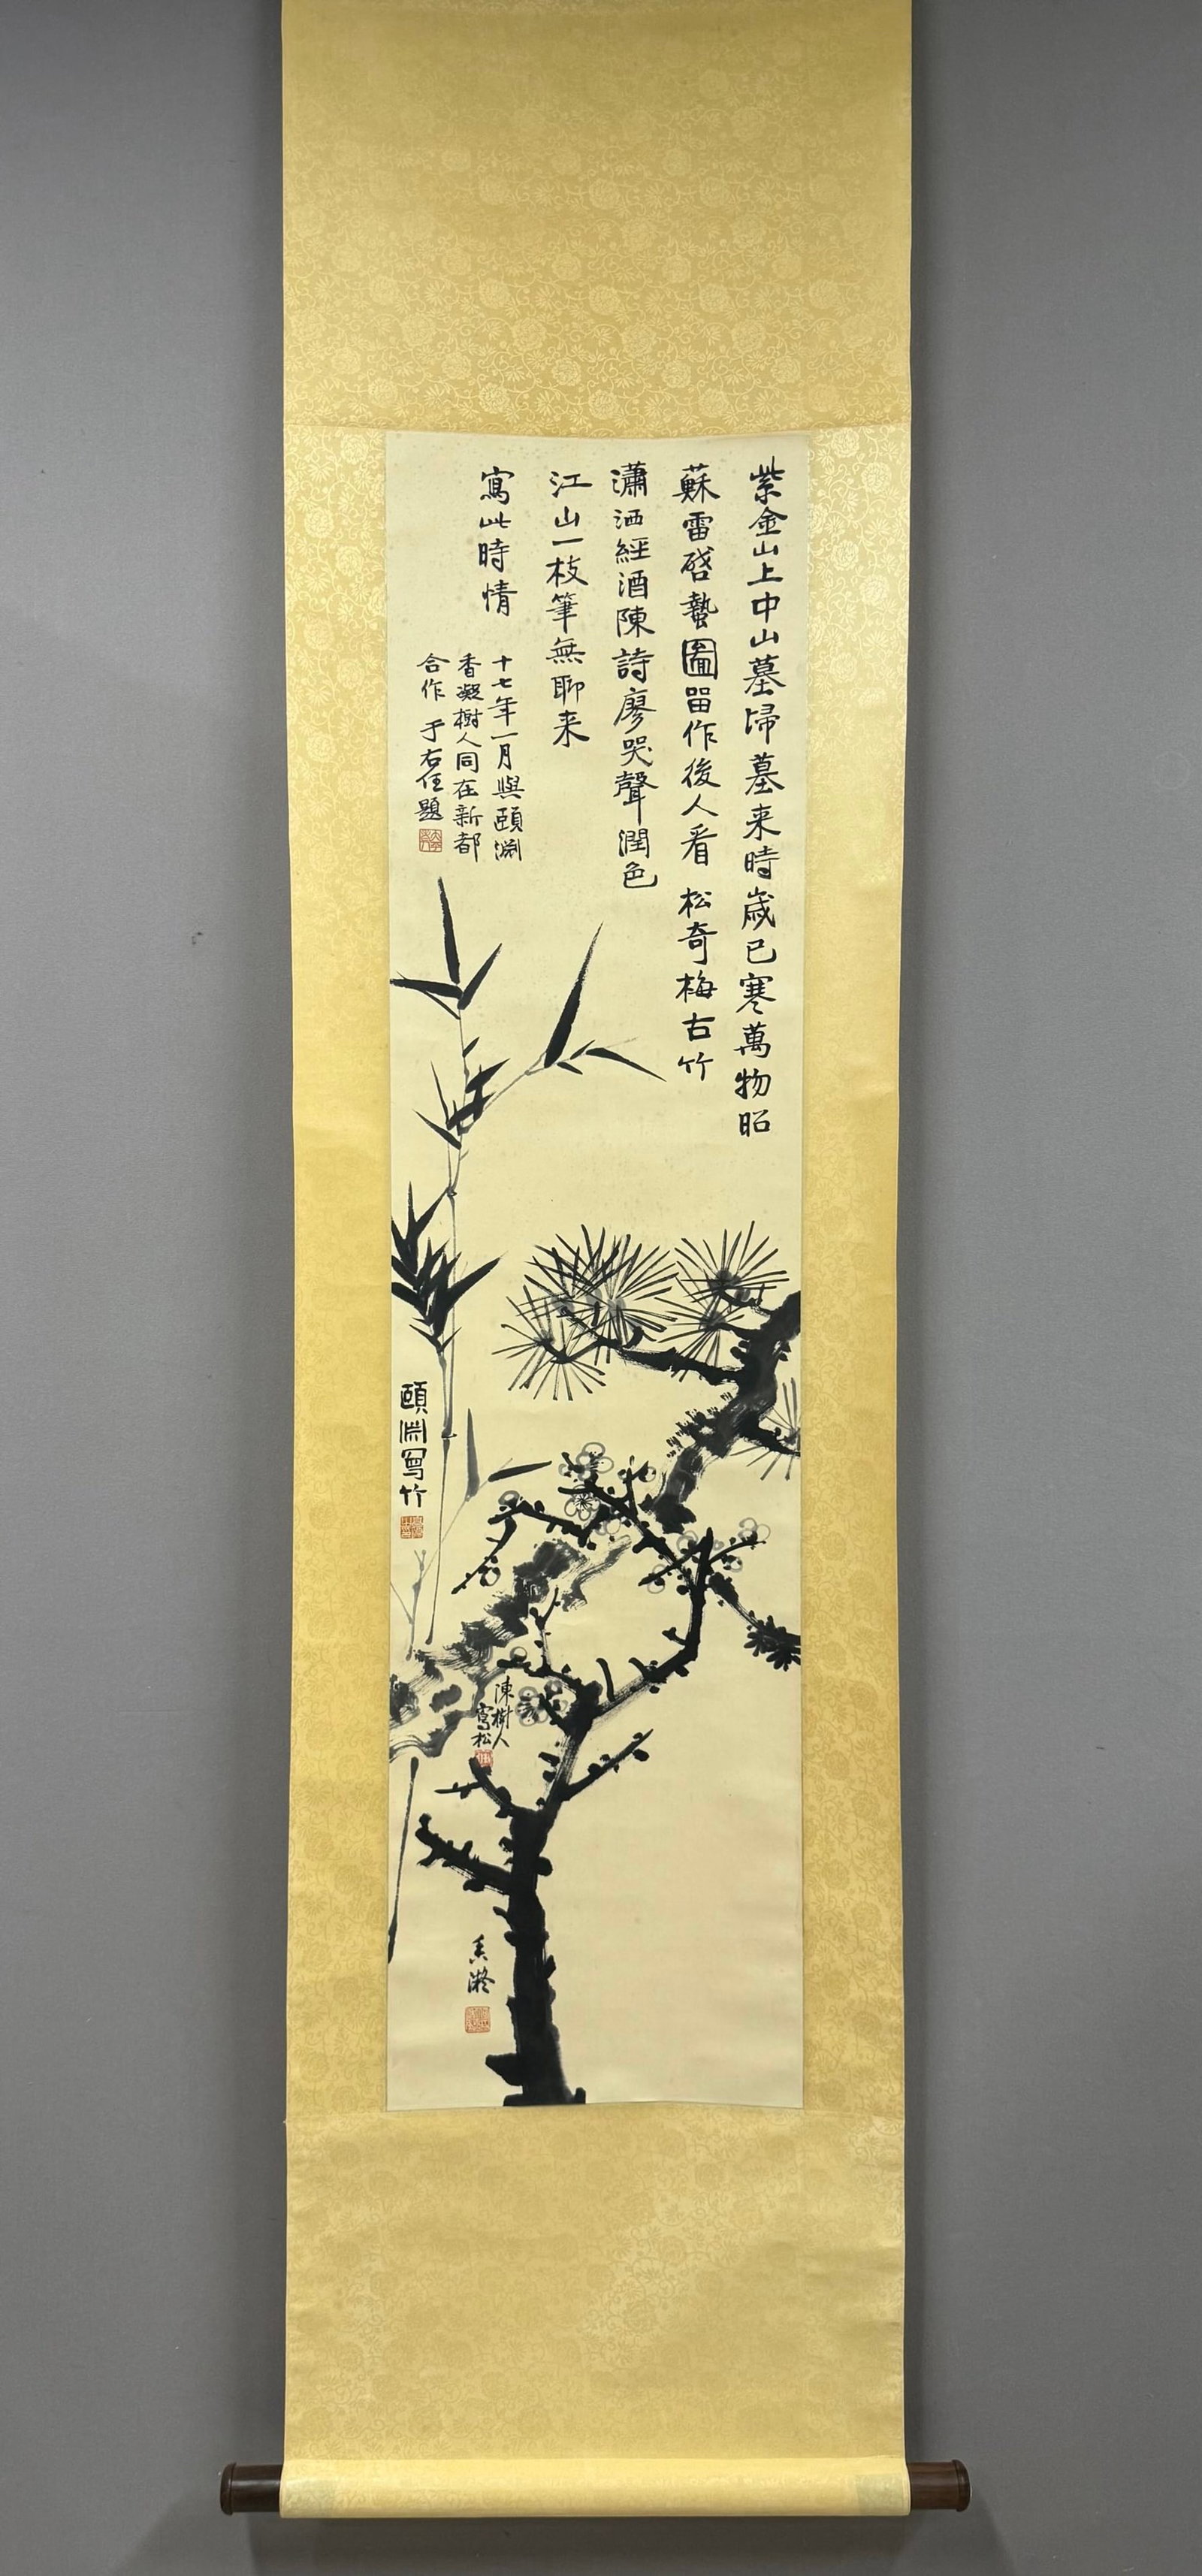 紫金山上中山墓掃墓来時歲已寒萬物昭
蘇雷啓蟄圖畱作後人看松奇梅古竹
瀟洒經酒陳詩廖哭聲潤色
江山一枝筆無聊来
寫此時情
十七年一月與頤淵
香凝樹人同在新都
合作 于右任題
頤淵寫竹
陳樹人
寫松
香凝